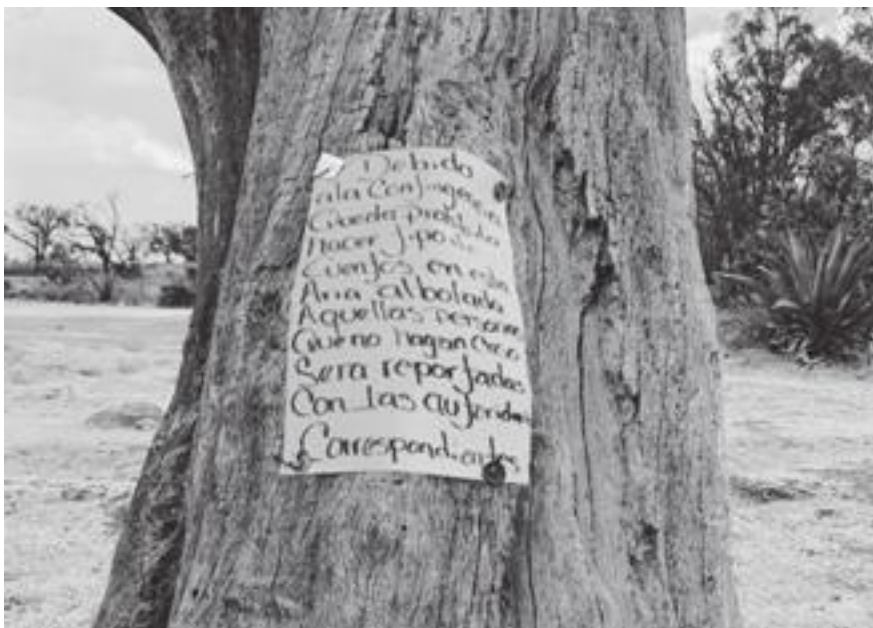 Debido
ala Contingencia
Queda Prohibido
Hacer
en esta
Aria albolada
Aquellas persona
Queno hagan Caso
Sera reportadas
Con las autoridades
Correspondientes